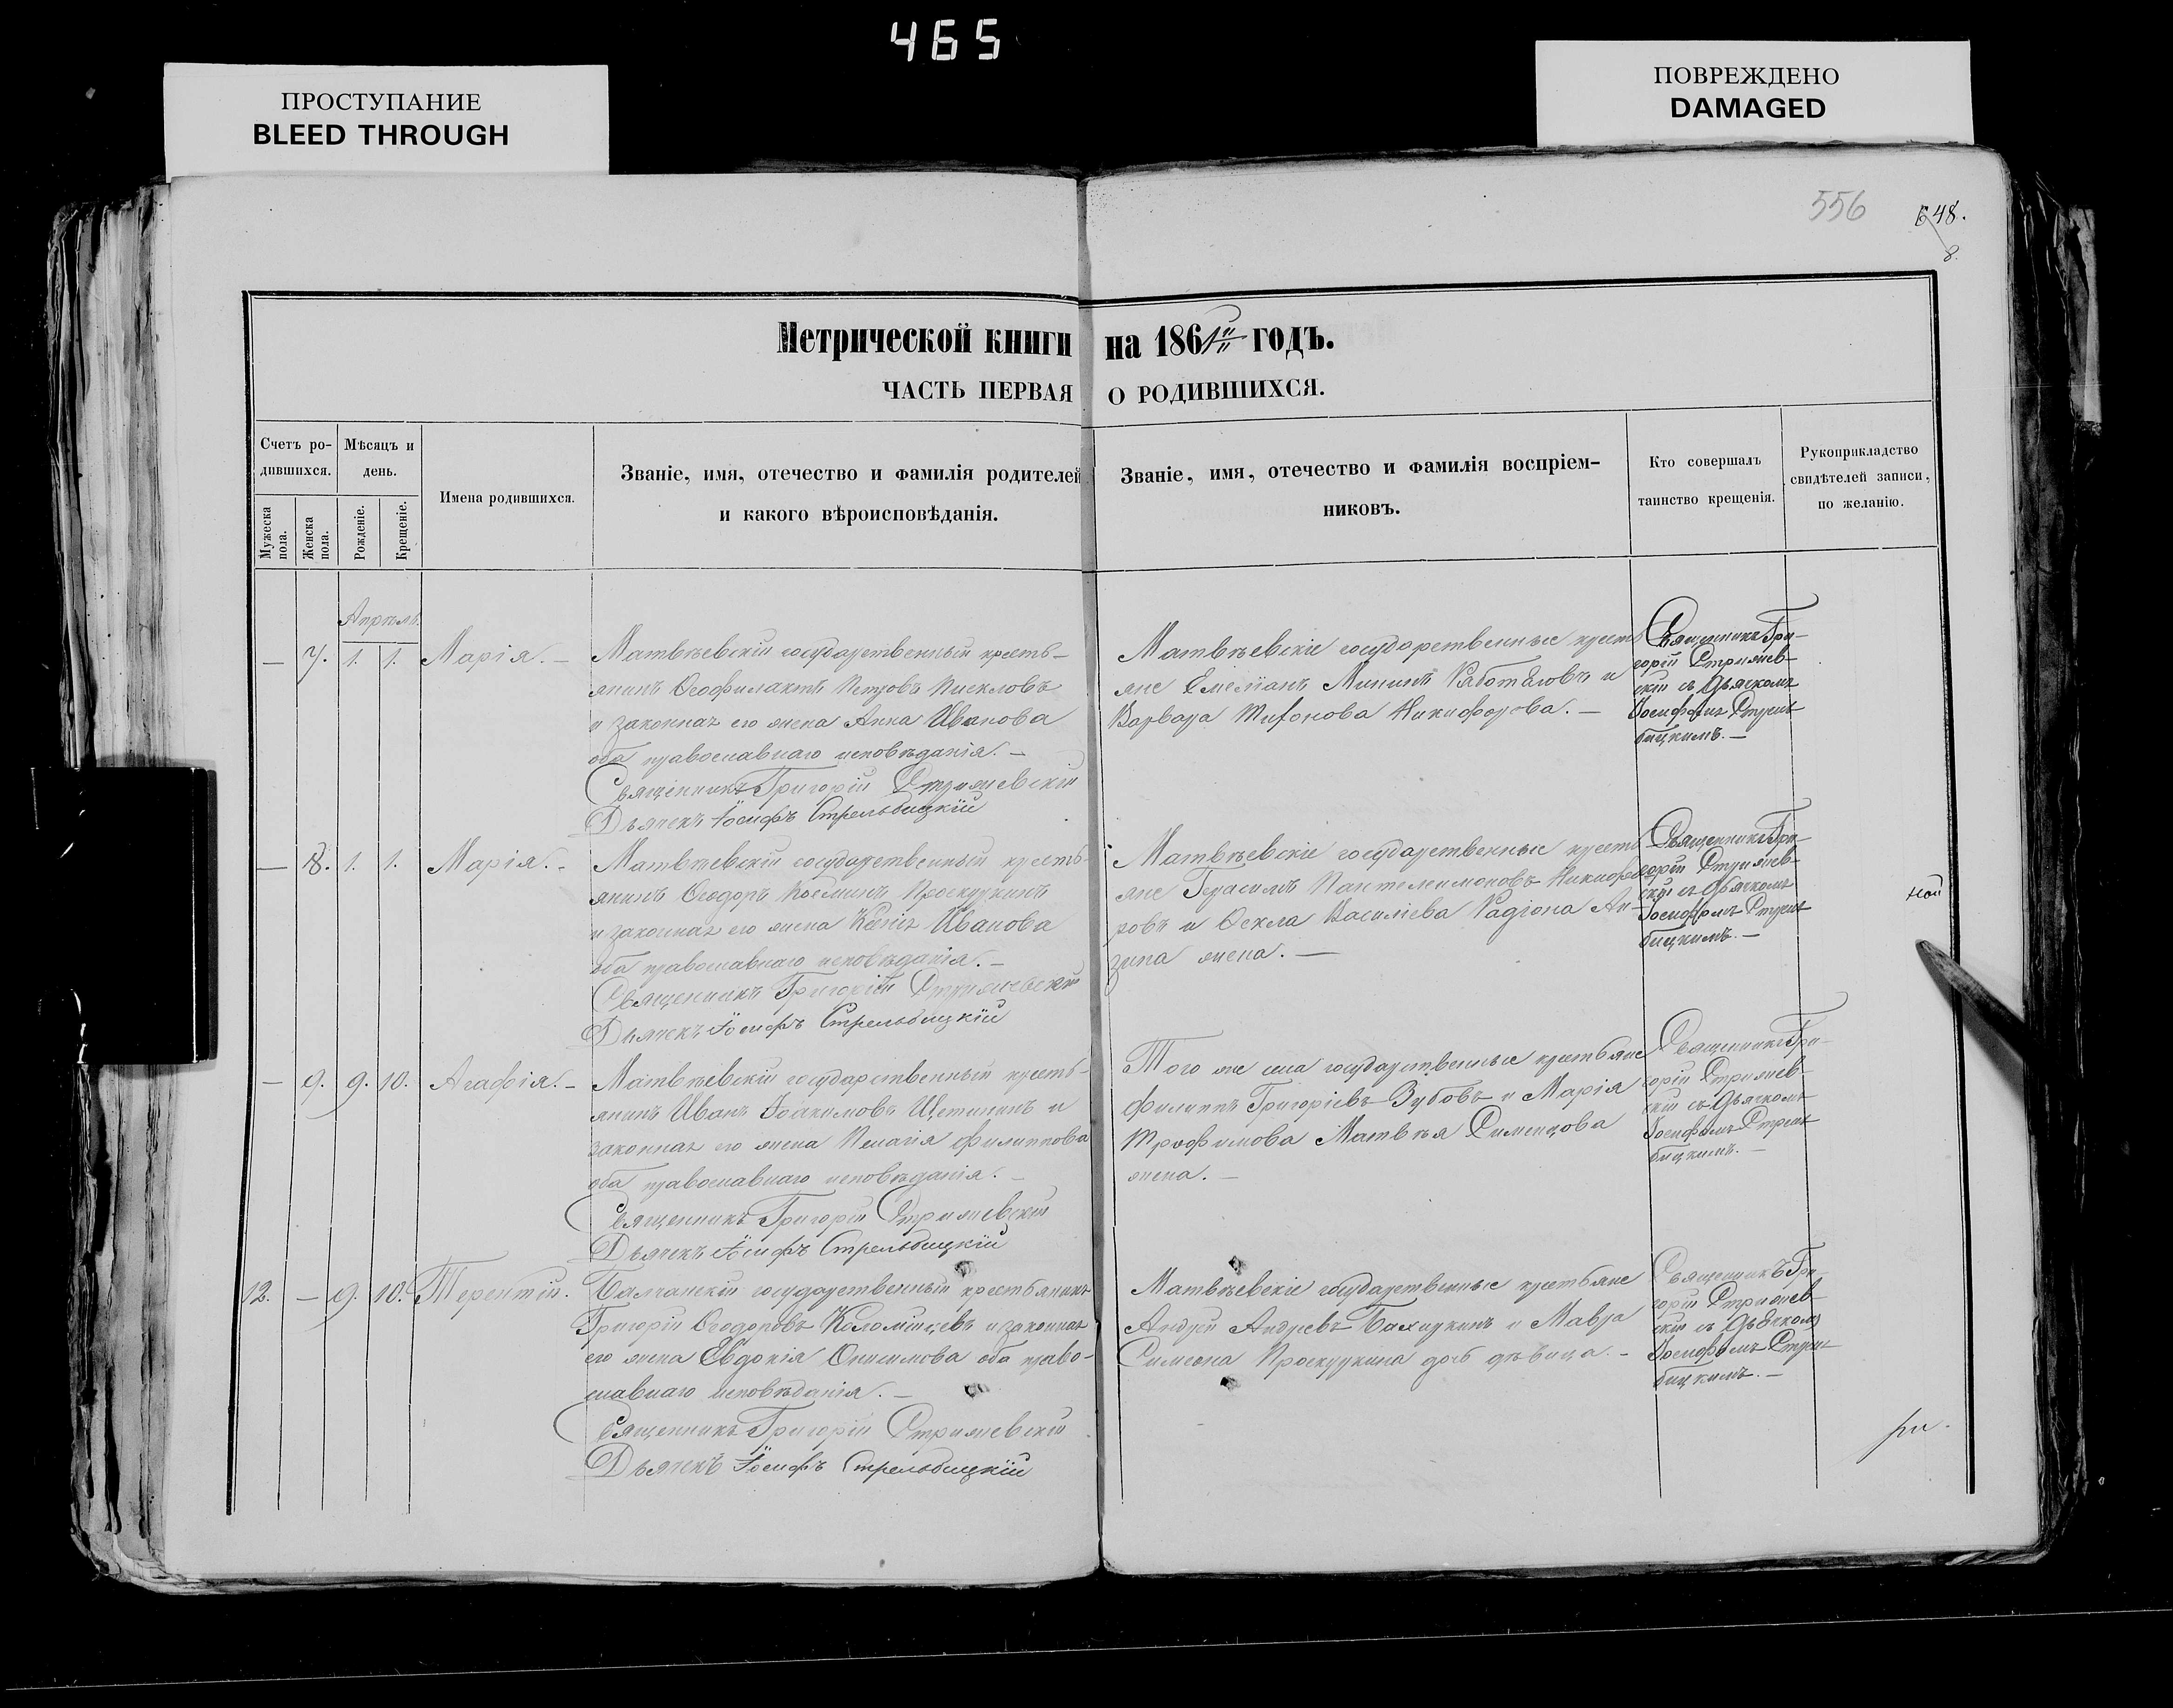 465
ПРОСТУПАНИЕ
BLEED THROUGH
ПОВРЕЖДЕНО
DAMAGED
556
648.
8.
Метрической книги на 1861 годъ.
ЧАСТЬ ПЕРВАЯ О РОДИВШИХСЯ.
Счетъ ро-
дившихся.
Мужеска
пола.
Женска
пола.
Мѣсяцъ и
день.
Рожденіе.
Крещеніе.
Имена родившихся.
Званіе, имя, отечество и фамилія родителей
и какого вѣроисповѣданія.
Званіе, имя, отечество и фамилія воспріем-
никовъ.
Кто совершалъ
таинство крещенія.
Рукоприкладство
свидѣтелей записи,
по желанію.
Апрѣль.
— 7. 1. 1. Марія. —
Матвѣевскій государственный кресть-
янинъ Ѳеофилактъ Петровъ Пискловъ
и законная его жена Анна Иванова
оба православнаго исповѣданія. —
Священникъ Григорій Стрижевскій
Дьячекъ Іосифъ Стрельбицкій
Матвѣевскіе государственные кресть
яне Емеліанъ Мининъ Работяговъ и
Варвара Тифонова Никифорова. —
Священникъ Гри-
горій Стрижев-
скій съ Дьячкомъ
Іосифомъ Стрель
бицкимъ. —
— 8. 1. 1. Марія. -
Матвѣевскій государственный кресть-
янинъ Ѳеодоръ Косминъ Проскуркинъ
и законная его жена Ксенія Иванова
оба православнаго исповѣданія. —
Священникъ Григорій Стрижевскій
Дьячекъ Іосифъ Стрельбицкій
Матвѣевскіе государственные кресть
яне Герасимъ Пантелеимоновъ Никифо
ровъ и Ѳекла Васильева Радіона Ан-
зина жена. —
Священникъ Гри-
горій Стрижев-
скій съ Дьячкомъ
Іосифомъ Стрель
бицкимъ. —
ной
— 9. 9. 10. Агафія. —
Матвѣевскій государственный кресть-
янинъ Иванъ Іоакимовъ Щетининъ и
законная его жена Пелагія Филиппова
оба православнаго исповѣданія. —
Священникъ Григорій Стрижевскій
Дьячекъ Іосифъ Стрельбицкій
Того же села государственные крестьяне
Филиппъ Григоріевъ Зубовъ и Марія
Трофимова Матвѣя Сименцова
жена. —
Священникъ Гри-
горій Стрижев-
скій съ Дьячкомъ
Іосифомъ Стрель
бицкимъ. —
12. — 9. 10. Терентій.
государственный крестьянинъ
Григорій Ѳеодоровъ Коломійцевъ и законная
его жена Евдокія Онисимова оба право-
славнаго исповѣданія. —
Священникъ Григорій Стрижевскій
Дьячекъ Іосифъ Стрельбицкій
Матвѣевскіе государственные крестьяне
Андрей Андреевъ Бахмукинъ и Мавра
Симеона Проскуркина дочь дѣвица. -
Священникъ Гри-
горій Стрижев-
скій съ Дьячкомъ
Іосифомъ Стрель
бицкимъ. —